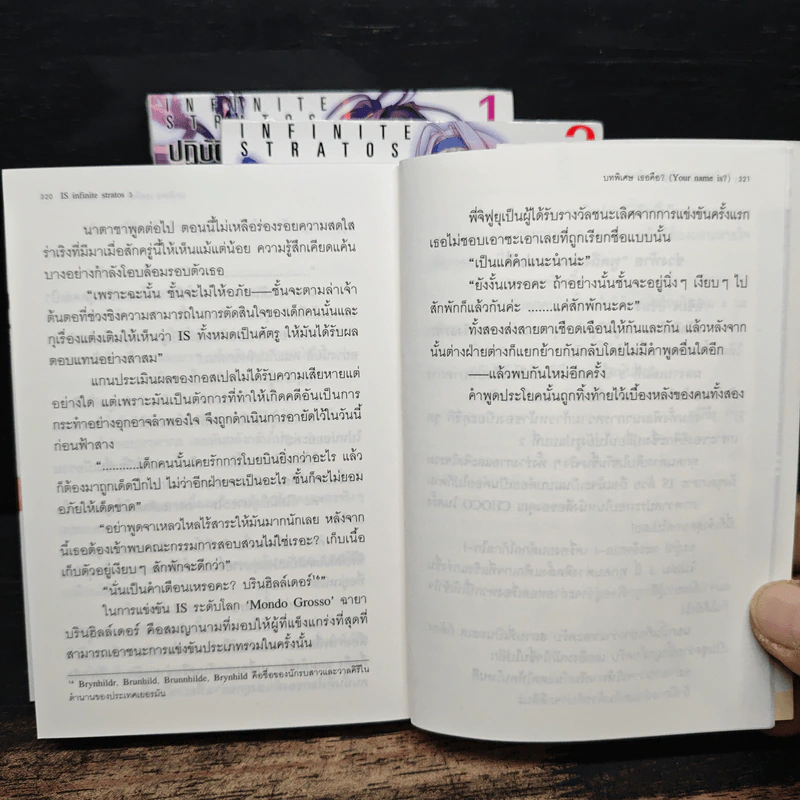 INFINITE
STRATOS
1
ปฏิบัติ
INFINITE
STRATOS
2
320 IS infinite stratos 3
นาตาชาพูดต่อไป ตอนนี้ไม่เหลือร่องรอยความสดใส
ร่าเริงที่มีมาเมื่อสักครู่นี้ให้เห็นแม้แต่น้อย ความรู้สึกเคียดแค้น
บางอย่างกำลังโอบล้อมรอบตัวเธอ
“เพราะฉะนั้น ชั้นจะไม่ให้อภัย——ชั้นจะตามล่าเจ้า
ต้นตอที่ช่วงชิงความสามารถในการตัดสินใจของเด็กคนนั้นและ
กุเรื่องแต่งเติมให้เห็นว่า IS ทั้งหมดเป็นศัตรู ให้มันได้รับผล
ตอบแทนอย่างสาสม”
แกนประเมินผลของกอสเปลไม่ได้รับความเสียหายแต่
อย่างใด แต่เพราะมันเป็นตัวการที่ทำให้เกิดคดีอันเป็นการ
กระทำอย่างอุกอาจลำพองใจ จึงถูกดำเนินการอายัดไว้ในวันนี้
ก่อนฟ้าสาง
“...........เด็กคนนั้นเคยรักการโบยบินยิ่งกว่าอะไร แล้ว
ก็ต้องมาถูกเด็ดปีกไป ไม่ว่าอีกฝ่ายจะเป็นอะไร ชั้นก็จะไม่ยอม
อภัยให้เด็ดขาด”
“อย่าพูดจาเหลวไหลไร้สาระให้มันมากนักเลย หลังจาก
นี้เธอต้องเข้าพบคณะกรรมการสอบสวนไม่ใช่เรอะ? เก็บเนื้อ
เก็บตัวอยู่เงียบๆ สักพักจะดีกว่า”
“นั่นเป็นคำเตือนเหรอคะ? บรินฮิลล์เดอร์¹⁶”
ในการแข่งขัน IS ระดับโลก ‘Mondo Grosso’ ฉายา
บรินฮิลล์เดอร์ คือสมญานามที่มอบให้ผู้ที่แข็งแกร่งที่สุดที่
สามารถเอาชนะการแข่งขันประเภทรวมในครั้งนั้น
¹⁶ Brynhildr, Brunhild, Brunnhilde, Brynhild คือชื่อของนักรบสาวและวาลคิรีใน
ตำนานของประเทศเยอรมัน
บทพิเศษ เธอคือ? (Your name is?) 321
พี่จิฟูยุเป็นผู้ได้รับรางวัลชนะเลิศจากการแข่งขันครั้งแรก
เธอไม่ชอบเอาซะเอาเลยที่ถูกเรียกชื่อแบบนั้น
“เป็นแค่คำแนะนำน่ะ”
“ยังงั้นเหรอคะ ถ้าอย่างนั้นชั้นจะอยู่นิ่งๆ เงียบๆ ไป
สักพักก็แล้วกันค่ะ .......แค่สักพักนะคะ”
ทั้งสองส่งสายตาเชือดเฉือนให้กันและกัน แล้วหลังจาก
นั้นต่างฝ่ายต่างก็แยกย้ายกันกลับโดยไม่มีคำพูดอื่นใดอีก
——แล้วพบกันใหม่อีกครั้ง
คำพูดประโยคนั้นถูกทิ้งท้ายไว้เบื้องหลังของคนทั้งสอง